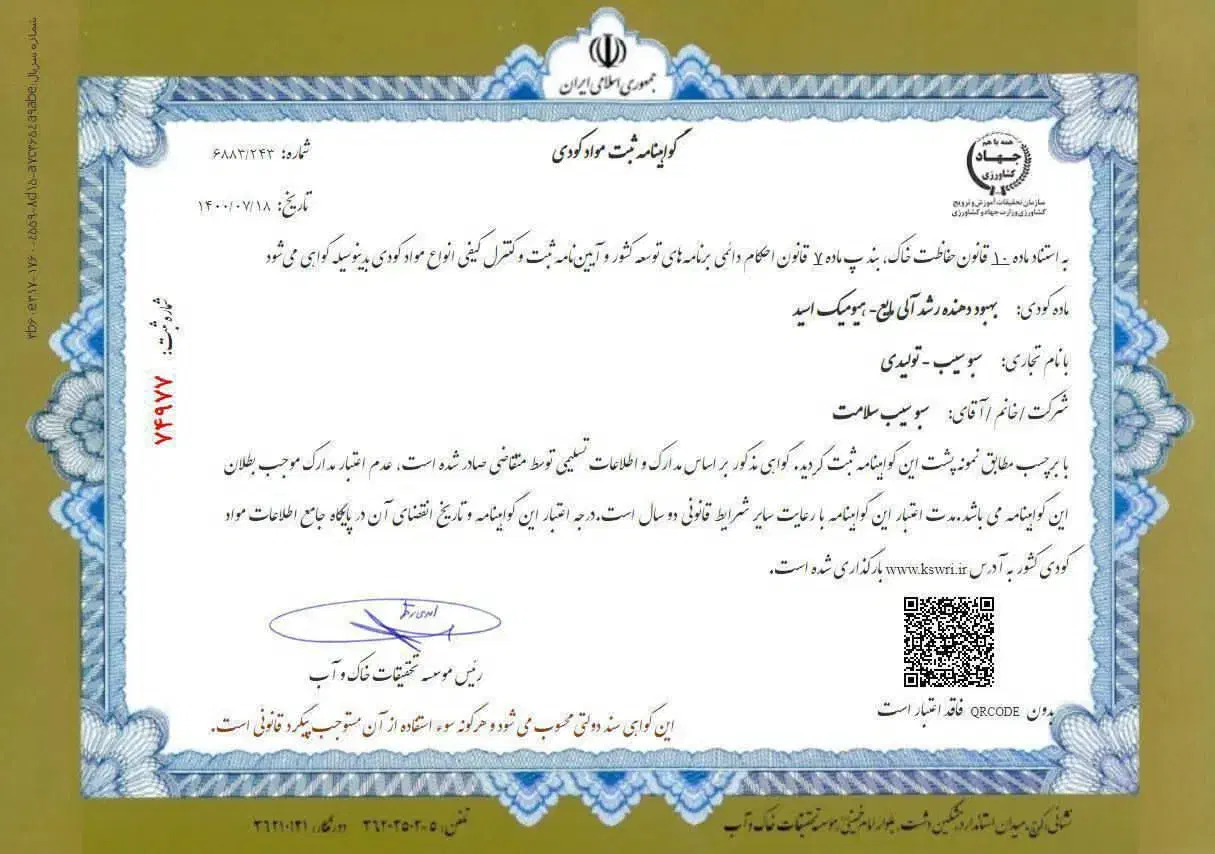 جمهوری اسلامی ایران
گواهینامه ثبت مواد کودی
شماره: ۶۸۸۳/۲۴۳
تاریخ: ۱۴۰۰/۰۷/۱۸
همه با هم
جهاد
کشاورزی
سازمان تحقیقات آموزش و ترویج
کشاورزی وزارت جهاد کشاورزی
به استناد ماده ۱۰ قانون حفاظت خاک، بند پ ماده ۷ قانون احکام دائمی برنامه های توسعه کشور و آیین‌نامه ثبت و کنترل کیفی انواع مواد کودی بدینوسیله گواهی می شود
ماده کودی: بهبود دهنده رشد آلی مایع- هیومیک اسید
با نام تجاری: سبو سیب - تولیدی
شرکت /خانم /آقای: سبو سیب سلامت
شماره ثبت:
۷۴۹۷۷
با برچسب مطابق نمونه پشت این گواهینامه ثبت گردید. گواهی مذکور بر اساس مدارک و اطلاعات تسلیمی توسط متقاضی صادر شده است، عدم اعتبار مدارک موجب بطلان
این گواهینامه می باشد.مدت اعتبار این گواهینامه با رعایت سایر شرایط قانونی دو سال است.درجه اعتبار این گواهینامه و تاریخ انقضای آن در پایگاه جامع اطلاعات مواد
کودی کشور به آدرس www.kswri.ir بارگذاری شده است.
رئیس موسسه تحقیقات خاک و آب
بدون QRCODE فاقد اعتبار است
این گواهی سند دولتی محسوب می شود و هرگونه سوء استفاده از آن مستوجب پیگرد قانونی است.
نشانی: کرج، میدان استاندارد، مشکین دشت، بلوار امام خمینی، موسسه تحقیقات خاک و آب
تلفن: ۵-۳۶۲۰۳۵۰۲ دورنگار: ۳۶۲۱۰۱۲۱
شماره سریال: